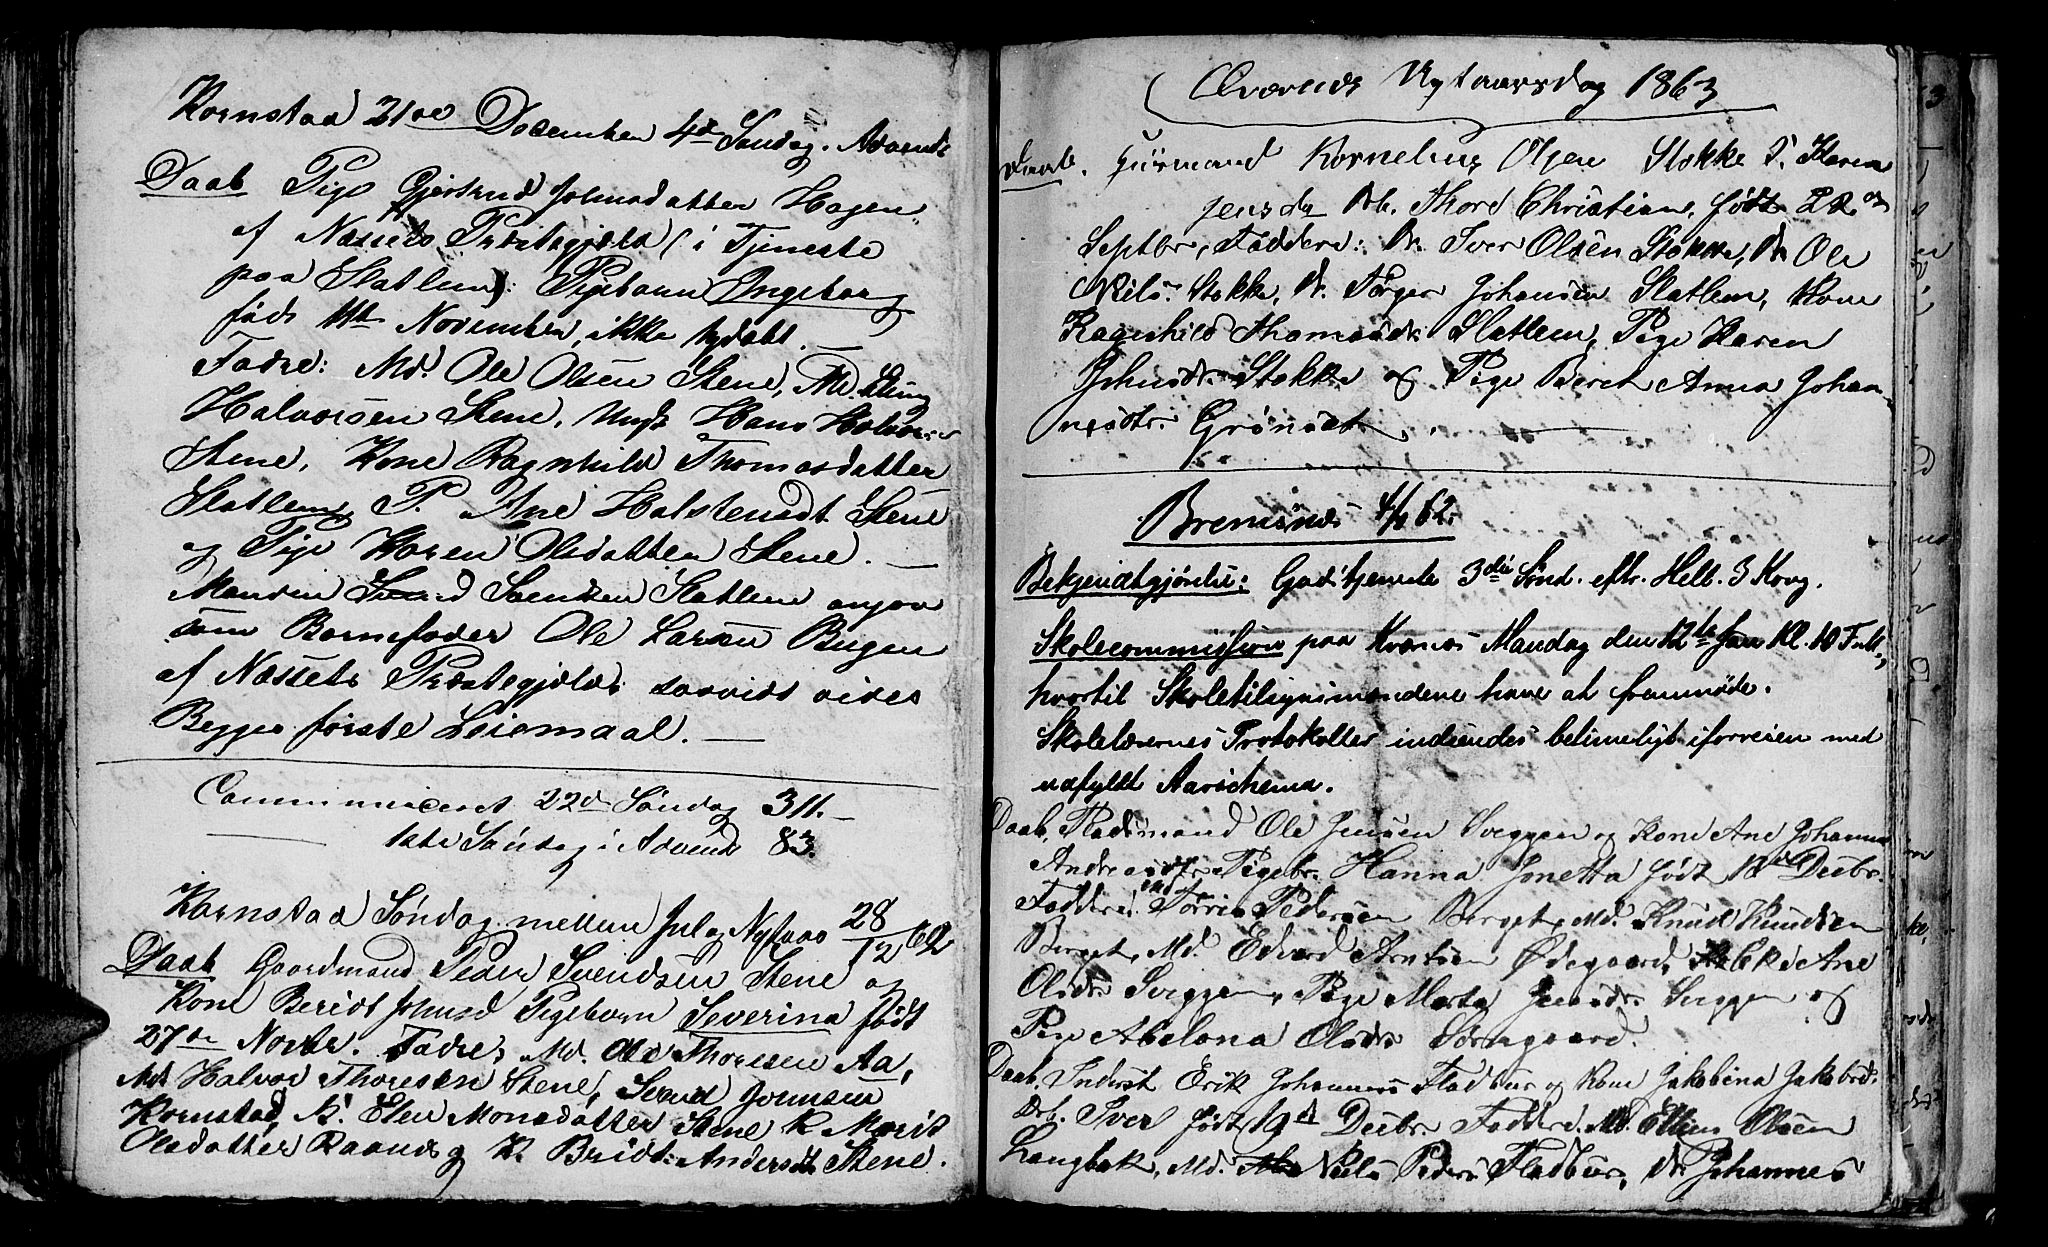 Kornstad 21de December 4de Søndag. Advents
Daab Pige Gjertrud Johnsdatter Hagen
af Næssets Præstegjeld (i Tjeneste
paa Slatlem): Pigebarn Ingeborg
føds 11te November, ikke hjdøbt. —
Fadre: Md. Ole Olsen Stene, Md.
Halvorsen Stene, Ungk Hans Halvor-
Stene, Kone Ragnhild Thomasdatter
Slatlem, P. Ane Halstensdt Stene
og Pige Karen Olsdatter Stene. —
Manden Svend Svensen Slatlem angav
som Barnefader Ole Larsen Bugen
af Næssets Præstegjeld: saavidt vides
Begges første Leiemaal. —
Communiceret 22de Søndag 311. —
— 1ste Søndag i Advend 83.
Kornstad Søndag mellem Jul og Nytaar 28/12 62
Daab Gaardmand Peder Svendsen Stene og
Kone Beridt Johnsd Pigebarn Severina født
27de Novbr. Fadre, Md. Ole Thoresen Aa,
Md Halvor Thoresen Stene, Svend Joensen
Kornstad, K. Elen Monsdatter Stene K. Marit
Olsdatter Raand og K. Bridt Andersdt Stene.
Qværnes Nytaarsdag 1863
Daab. Huusmand Kornelius Olsen Stokke & Karen
Jensdr Drb. Thore Christian, født 22de
Septbr, Faddere: Dr. Iver Olsen Stokke, Dr Ole
Niels. Stokke, Dr. Torger Johansen Slatlem, Kone
Ragnhild Thomasdr Slatlem, Pige Karen
Johnsdr. Stokke og Pige Beret Anna Johan-
nesdtr. Grønset. —
Bremsnes 4/1 62.
Bekjendtgjørelse: Gudstjeneste 3die Sønd. eftr. Hell. 3 Kong.
Skolecommission paa Kvernes Mandag den 12te Jan Kl. 10 Fmdd.,
hvortil Skoletilsynsmændene have at fremmøde.
Skolelærernes Protokoller indsendes betimeligt iforveien med
udfyldt Aarsschema.
Daab, Pladsmand Ole Jensen Sveggen og Kone Ane Johanna
Andreasdtr. Pigebr. Hanna Jonetta født 18de Decbr.
Faddre: Md Torris Pedersen Berget, Md. Knud Knudsen
Berget, Md. Edvard Arntsen Ødegaard, Ane
Olsdr Sveggen, Pige Marta Jensdr Sveggen og
Pige Abelona Olsdr Sørngaard.
Daab, Inderst Erik Johannes Fladbur og Kone Jakobina Jakobsd.
Drb. Iver født 19de Decbr. Faddre. Md. Ellin Olsen
Langbak, Md. Niels Peders Fladbur, Dr. Johannes